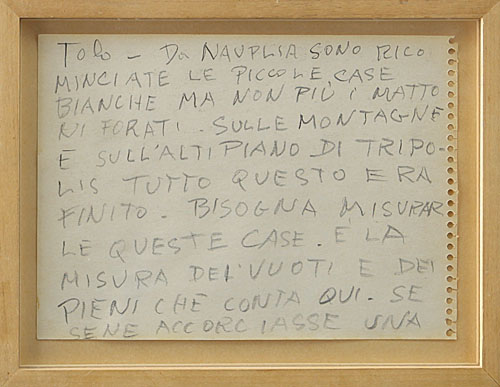 TOLO - DA NAUPLIA SONO RICO
MINCIATE LE PICCOLE CASE
BIANCHE MA NON PIÙ I MATTO
NI FORATI. SULLE MONTAGNE
E SULL'ALTIPIANO DI TRIPO-
LIS TUTTO QUESTO ERA
FINITO. BISOGNA MISURAR
LE QUESTE CASE. È LA
MISURA DEI VUOTI E DEI
PIENI CHE CONTA QUI. SE
SENE ACCORCIASSE UNA